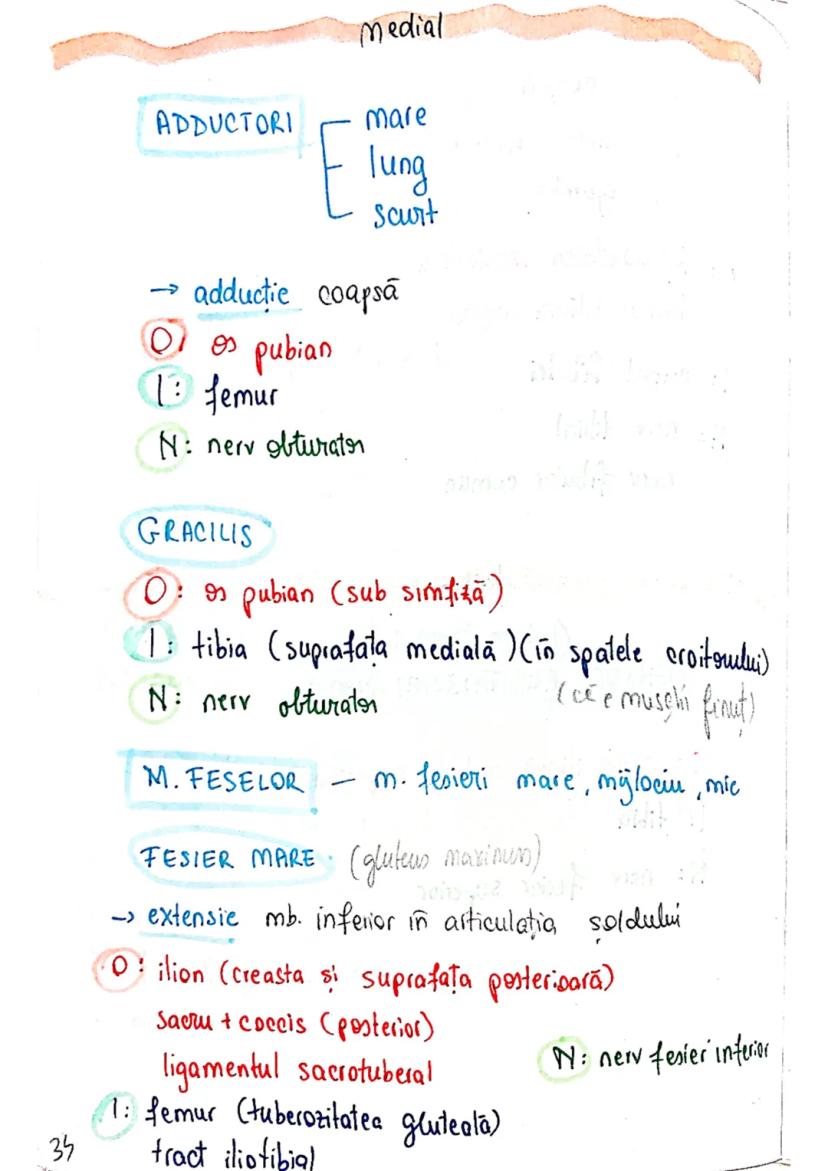 medial
ADDUCTORI
mare
lung
scurt
→ adducție coapsă
O: os pubian
I: femur
N: nerv obturator
GRACILIS
O: os pubian (sub simfiză)
I: tibia (suprafața medială) (în spatele croitorului)
N: nerv obturator
(că e mușchi finuț)
M. FESELOR — m. fesieri mare, mijlociu, mic
FESIER MARE (gluteus maximus)
→ extensie mb. inferior în articulația șoldului
O: ilion (creasta și suprafața posterioară)
sacru + coccis (posterior)
ligamentul sacrotuberal
N: nerv fesier inferior
I: femur (tuberozitatea gluteală)
tract iliotibial